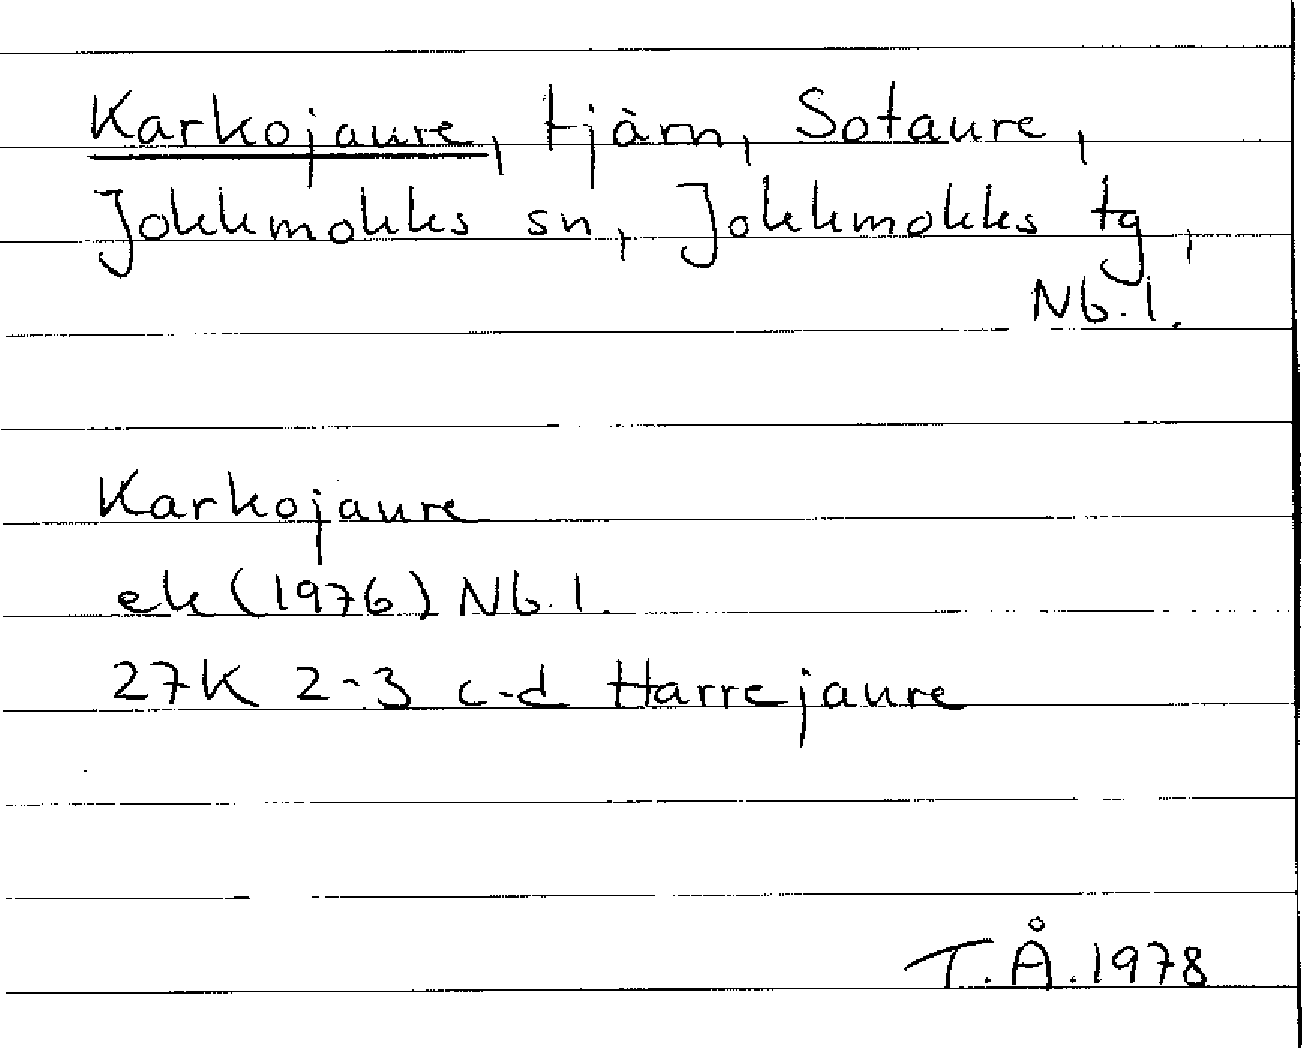 Karkojaure, tjärn, Sotaure,
Jokkmokks sn, Jokkmokks tg,
Nb. l.
Karkojaure
ek (1976) Nb. l.
27K 2-3 c-d Harrejaure
T.Å. 1978